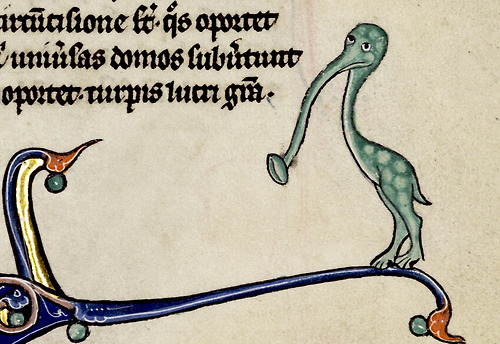 ircūcisione st̄· q̊s oportet
uniūsas domos subūtunt
oportet· turpis lucri grā·